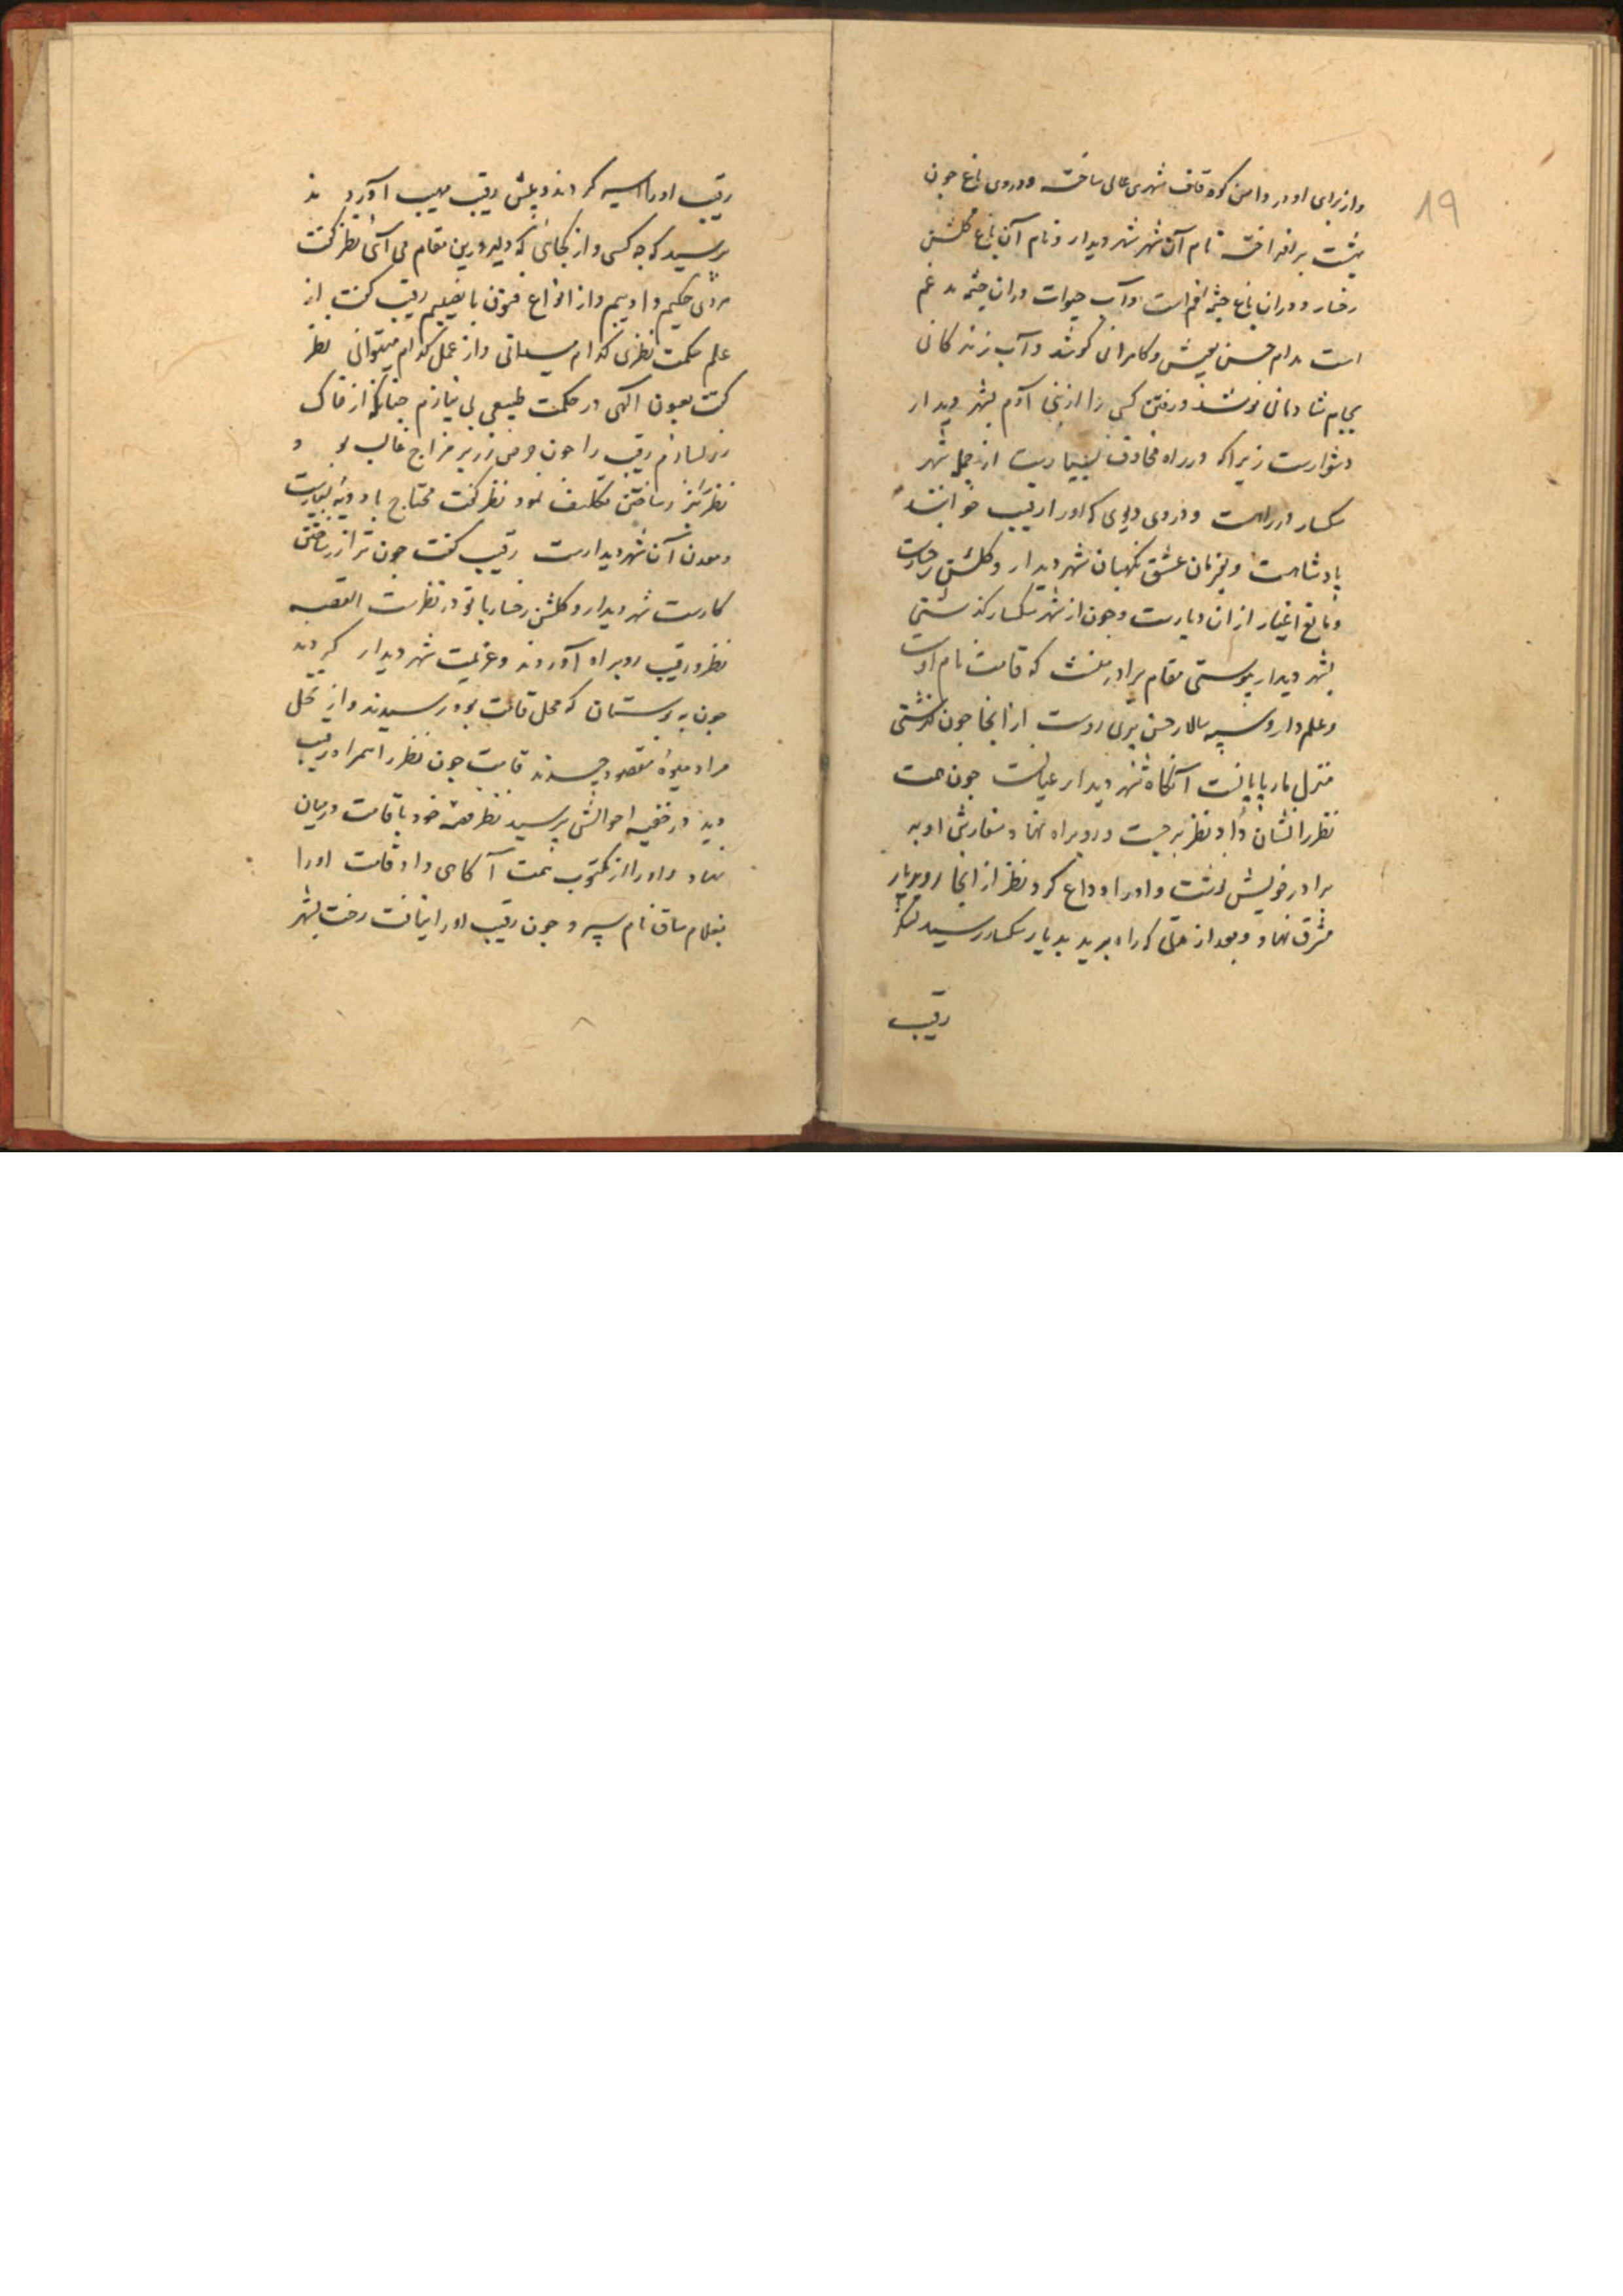 19
واز برای او در دامن کوه قاف شهری عالی ساخته و در وی باغ چون
بهشت برافراخته نام آن شهر شهر دیدار و نام آن باغ گلشن
رخسار و در ان باغ چشمه ایست و آب حیوات در ان چشمه
است مدام حسن بعیش و کامرانی کوشد و آب زندکانی
بجام شادمانی نوشد و رفتن کسی را از بنی آدم بشهر دیدار
دشوارست زیرا که در راه مخاوف بسیارست از جمله شهر
سکسار در راهست و در وی دیوی که او را رقیب خوانند
پادشاهست و بفرمان عشق نکهبان شهر دیدار و گلشن رخسارست
و مانع اغیار از ان دیارست و چون از شهر سکسار کذشتی
بشهر دیدار پیوستی مقام برادر منست که قامت نام اوست
و علم دار و سپه سالار حسن پری روست از انجا چون گذشتی
منزل مار پایانست آنکاه شهر دیدار عیانست چون همت
نظر را نشان داد نظر برجست و رو براه نهاد و سفارشی او به
برادر خویش نوشت و او را وداع کرد نظر از انجا رو بدیار
مشرق نهاد و بعد از مدتی که راه برید بدیار سکسار رسید
رقیب
رقیب او را اسیر کردند و پیش رقیب مهیب آوردند
پرسید که چه کسی و از کجائی که دلیر درین مقام می آئی نظر کفت
مردی حکیم و ادیبم و از انواع فنون با نصیبم رقیب کفت از
علم حکمت نظری کدام میدانی و از عمل کدام میتوانی نظر
کفت بعون الهی در حکمت طبیعی بی نیازم چنانکه از خاک
زر سازم رقیب را چون حرص زر بر مزاج غالب بود
نظر را بزر ساختن تکلیف نمود نظر کفت محتاج بادویه بسیارست
و معدن آن شهر دیدارست رقیب کفت چون ترا زر ساختن
کارست شهر دیدار و گلشن رخسار با تو در نظرست القصه
نظر و رقیب رو براه آوردند و عزیمت شهر دیدار کردند
چون به بوستان که محل قامت بود رسیدند و از نخل
مراد میوهٔ مقصود چیدند قامت چون نظر را همراه رقیب
دید در خفیه احوالش پرسید نظر قصه خود با قامت در میان
نهاد و او را از مکتوب همت آکاهی داد قامت او را
بغلام ساق نام سپرد چون رقیب او را نیافت رخت بشهر